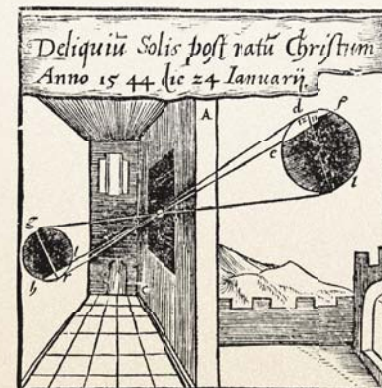 Deliquiũ Solis post ratũ Christum
Anno 15 44 die 24 Ianuarij.
A
d
p
e
l
g
h
C